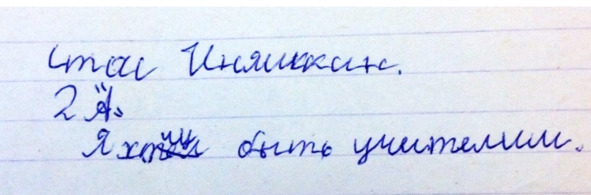 Стас Иняшкин.
2 "А".
Я хочу быть учителим.